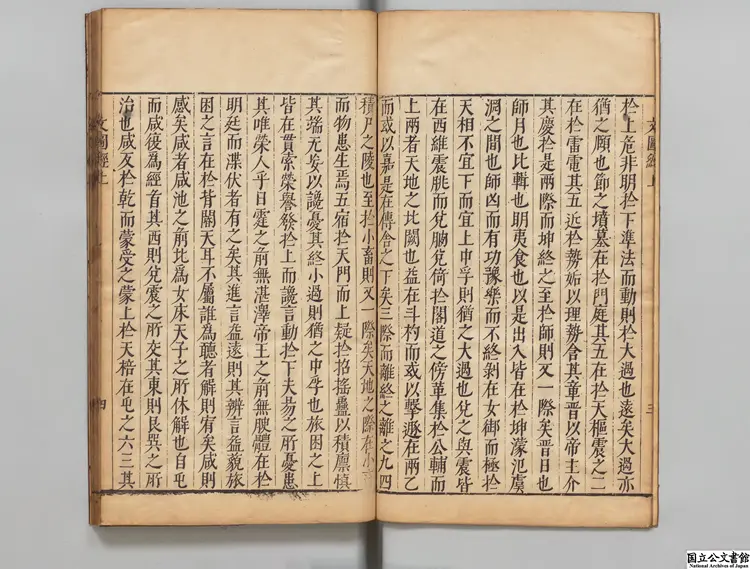 文圖經上
三
於上危非明於下準法而動則於大過也遠矣大過亦
猶之頤也節之墳墓在於門庭其五在於天樞震之二
在於雷電其五近於勢姤以理勢含其童晋以帝主介
其慶於是兩際而坤終之至於師則又一際矣晋日也
師月也比輯也明夷食也以是出入皆在於坤濛汜虞
淵之間也師凶而有功豫樂而不終剝在女御而極於
天相不宜下而宜上中孚則猶之大過也兌之與震皆
在西維震朓而兌朒兌倚於閣道之傍萃集於公輔而
上兩者天地之北闕也益在斗杓而或以擊遯在兩乙
而或以嘉是在傳舍之下矣三際而離終之離之九四
積尸之陵也至於小畜則又一際矣天地之際在小
而物患生焉五宿於天門而上疑於招搖蠱以積廪慎
其端无妄以讒憂其終小過則猶之中孚也旅困之上
皆在貫索榮譽發於上而讒言動於下夫易之所憂患
其唯榮人乎日霆之前無湛澤帝王之前無腴體在於
明廷而渫伏者有之矣其進言益遠則其辨言益貌旅
困之言在於葑關天耳不屬誰為聽者解則宥矣咸則
感矣咸者咸池之前比為女床天子之所休解也自屯
而咸後為經首其西則兌震之所交其東則艮巽之所
治也咸反於乾而蒙受之蒙上於天棓在屯之六三其
文圖經上
四
国立公文書館
National Archives of Japan